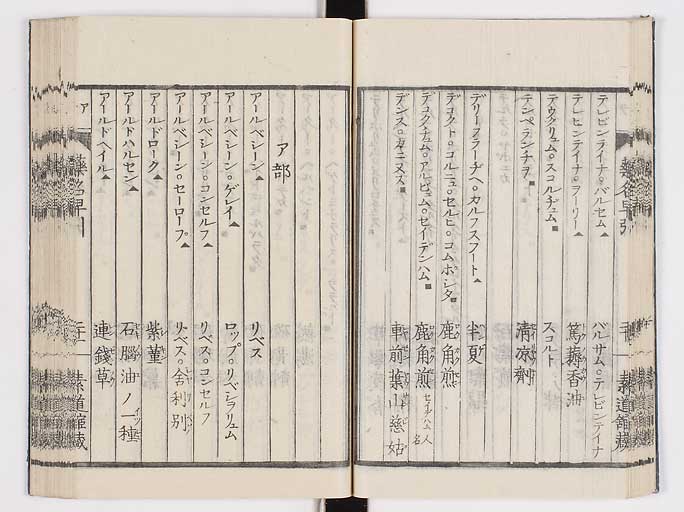 テレビンテイナ。バルセム▲ バルサム。テレビンテイナ
テレビンテイナ。ヲーリー▲ 篤耨香油
テウクリュム。スコルヂュム■ スコルト
テンペランチヲ■ 清凉劑
デリーフラーヂヘ。カルフスフート▲ 半夏
デコクト。コルニュ。セルヒ。コムポシタ■ 鹿角煎
デコクチュム。アルビュム。セイデンハム■ 鹿角煎 セイデンハム人名
デンス。カニヌス■ 車前葉山慈姑
ア部
アールベシーン▲ リベス
アールベシーン。ゲレイ▲ ロップ。リベシヲリュム
アールベシーン。コンセルフ▲ リベス。コンセルフ
アールベシーン。セーロープ▲ リベス。舎利別
アールドローク▲ 紫菫
アールドハルセン▲ 石腦油ノ一種
アールドヘイル▲ 連錢草